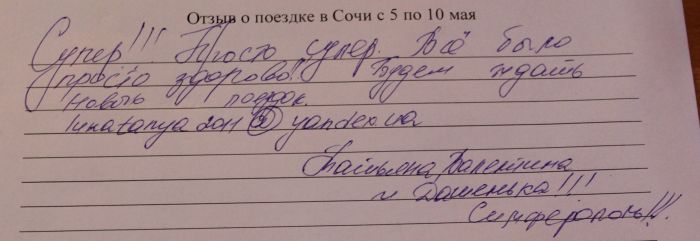 Отзыв о поездке в Сочи с 5 по 10 мая
Супер!!! Просто супер. Всё было
просто здорово! Будем ждать
новых поездок.
lunatanya2011@yandex.ua
Татьяна, Валентина
и Дашенька!!!
Симферополь!!!